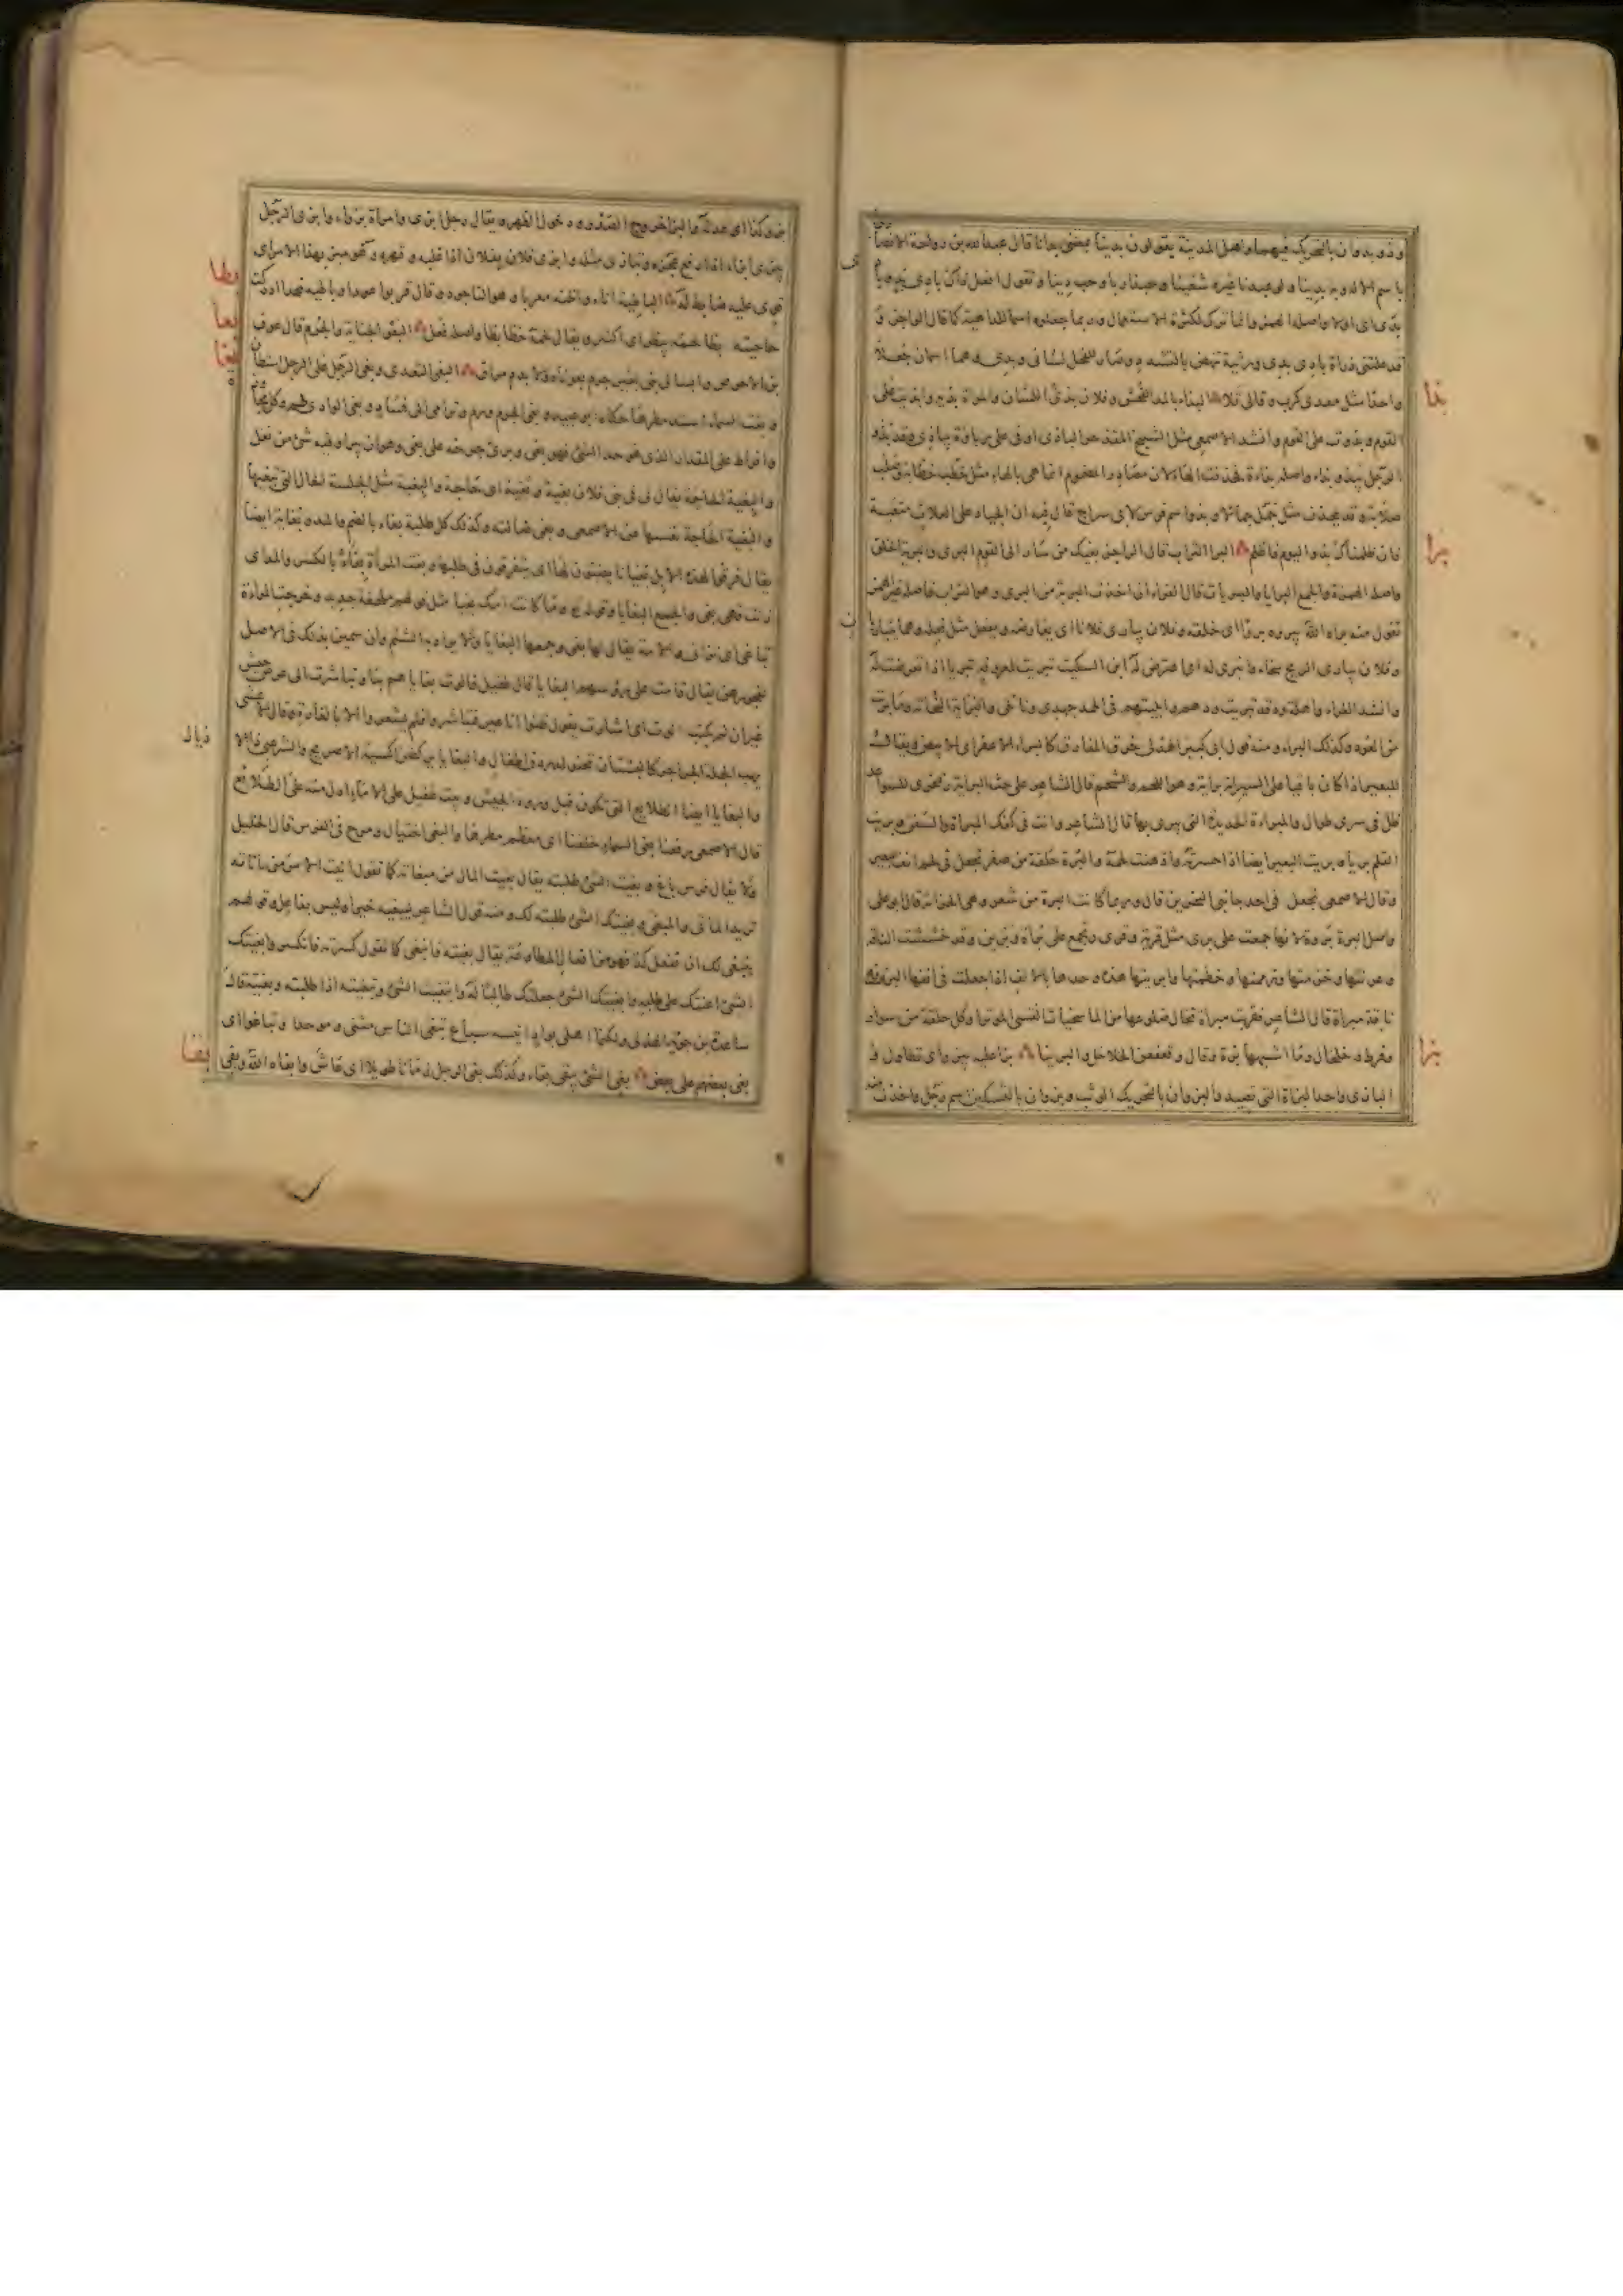 وذو بدوان بالتحريك فيهما واهل المدينة يقولون بدينا بمعنى بدانا قال عبد الله بن رواحة الانصاري
باسم الاله وبه بدينا ولو عبدنا غيره شقينا وحبذا ربا وحب دينا وتقول افعل ذاك بادي بدي
بدي اي اولا واصله الهمز وانما ترك لكثرة الاستعمال وربما جعلوه اسما للداهية كما قال الراجز و
قد علتني ذرأة بادي بدي ورثية تنهض بالتشدد وصار للفحل لساني ويدي وهما اسمان جعلا
بذا
واحدا مثل معدي كرب وقالي قلا البذاء بالمد الفحش وفلان بذي اللسان والمرأة بذية وابذيت على
القوم وبذوت على القوم وانشد الاصمعي مثل الشيخ المقذحر الباذي اوفى على رباوة يباذي وقد بذو
الرجل يبذو بذاء واصله بذاءة فحذفت الهاء لان مصادر المضموم انما هي بالهاء مثل خطب خطابة وصلب
صلابة وقد تحذف مثل جمل جمالا وبذوا اسم فرس لابي سراج قال فيه ان الجياد على العلات متعبة
برا
فان ظلمناك بذو اليوم فاظلم البرا التراب قال الراجز بفيك من سار الى القوم البرى والبرية الخلق
واصله الهمزة والجمع البرايا والبريات قال الفراء ان اخذت البرية من البرى وهو التراب فاصلها غير الهمز
تقول منه براه الله يبروه بروا اي خلقه وفلان يباري فلانا اي يعارضه ويفعل مثل فعله وهما يتباريان
وفلان يباري الريح سخاء وانبرى له اي اعترض له ابن السكيت تبريت لمعروفه تبريا اذا تعرضت له
وانشد الفراء واهلة ود قد تبريت ودهم وابليتهم في الحمد جهدي ونائلي والبراية النحاتة وما بريت
من العود وكذلك البراء ومنه قول ابي كبير الهذلي حرق المفارق كالبراء الاعفر اي الابيض ويقال
للبعير اذا كان باقيا على السير انه لبراية وهو اللحم والشحم قال الشاعر على حت البراية زمخري السواعد
ظل في شري طوال والمبراة الحديدة التي يبرى بها قال الشاعر وانت في كفك المبراة والسفن وبريت
القلم بريا وبريت البعير ايضا اذا حسرته واذهبت لحمه والبرة حلقة من صفر تجعل في لحم انف البعير
وقال الاصمعي تجعل في احد جانبي المنخرين قال وربما كانت البرة من شعر وهي الخزامة قال ابو علي
واصل البرة بروة لانها جمعت على برى مثل قرية وقرى وتجمع على برات وبرين وقد خششت الناقة
وعرنتها وخزمتها وزممتها وخطمتها وابريتها هذه وحدها بالالف اذا جعلت في انفها البرة فهي
ناقة مبراة قال الشاعر فقربت مبراة تخال ضلوعها من الماسخيات القسي الموترا وكل حلقة من سوار
بزا
وقرط وخلخال وما اشبهها برة وقال وقعقعن الخلاخل والبرينا بزا عليه يبزو اي تطاول و
البازي واحد البزاة التي تصيد والبزوان بالتحريك الوثب وبزوان بالتسكين اسم رجل واخذت منه
بزو كذا اي عدله والبزا خروج الصدر ودخول الظهر ويقال رجل ابزى وامرأة بزواء وابزى الرجل
يبزي ابزاء اذا رفع عجزه وتبازى مثله وابزى فلان بفلان اذا غلبه وقهره وهو مبز بهذا الامر اي
بطا
قوي عليه ضابط له الباطية اناء واظنه معربا وهو الناجود وقال قربوا عودا وباطية فبذا ادركت
بعا
حاجتيه بظا لحمه يبظو اي اكتنز ويقال لحمه خظا بظا واصله فعل البعو الجناية والجرم قال عوف
بغا
بن الاحوص وابسالي بني بغير جرم بعوناه ولا بدم مراق البغي التعدي وبغى الرجل على الرجل استطال
وبغت السماء اشتد مطرها حكاه ابو عبيد وبغى الجرح ورم وترامى الى فساد وبغى الوادي ظلم وكل مجاوزة
وافراط على المقدار الذي هو حد الشيء فهو بغي وبرئ جرحه على بغي وهو ان يبرأ وفيه شيء من نغل
والبغية الحاجة يقال لي في بني فلان بغية وبغية اي حاجة والبغية مثل الجلسة الحال التي تبغيها
والبغية الحاجة نفسها عن الاصمعي وبغى ضالته وكذلك كل طلبة بغاء بالضم والمد وبغاية ايضا
يقال فرقوا لهذه الابل بغيانا يضبون لها اي يتفرقون في طلبها وبغت المرأة بغاء بالكسر والمد اي
زنت فهي بغي والجمع البغايا وقوله تع وما كانت امك بغيا مثل قولهم ملحفة جديد وخرجت المرأة
تباغي اي تزاني والامة يقال لها بغي وجمعها البغايا ولا يراد به الشتم وان سمين بذلك في الاصل
لفجورهن يقال قامت على رؤسهم البغايا قال طفيل فالوت بغاياهم بنا وتباشرت الى عرض جيش
غير ان لم يكتب الوت اي اشارت يقول ظنوا انا عير فتباشروا فلم يشعروا الا بالغارة وقال الاعشى
ذيال
يهب الجلة الجراجر كالبستان تحنو لدردق اطفال والبغايا يركضن اكسية الاضريج والشرعبي ذا الا
والبغايا ايضا الطلايع التي تكون قبل ورود الجيش وبيت طفيل على الاماء ادل منه على الطلايع
قال الاصمعي دفعنا بغي السماء خلفنا اي معظم مطرها والبغي اختيال ومرح في الفرس قال الخليل
ولا يقال فرس باغ وبغيت الشيء طلبته يقال بغيت المال من مبغاته كما تقول اتيت الامر من مأتاته
تريد المأتى والمبغى وبغيتك الشيء طلبته لك ومنه قول الشاعر ليبغيه خيرا وليس بفاعل وقولهم
ينبغي لك ان تفعل كذا فهو من افعال المطاوعة يقال بغيته فانبغى كما تقول كسرته فانكسر وابغيتك
الشيء اعنتك على طلبه وابغيتك الشيء جعلتك طالبا له وابتغيت الشيء وتبغيته اذا طلبته وبغيته قال
ساعدة بن جؤية الهذلي ولكنما اهلي بواد انيسه سباع تبغى الناس مثنى وموحدا وتباغوا اي
بقا
بغى بعضهم على بعض بقي الشيء يبقى بقاء وكذلك بقي الرجل زمانا طويلا اي عاش وابقاه الله وبقي